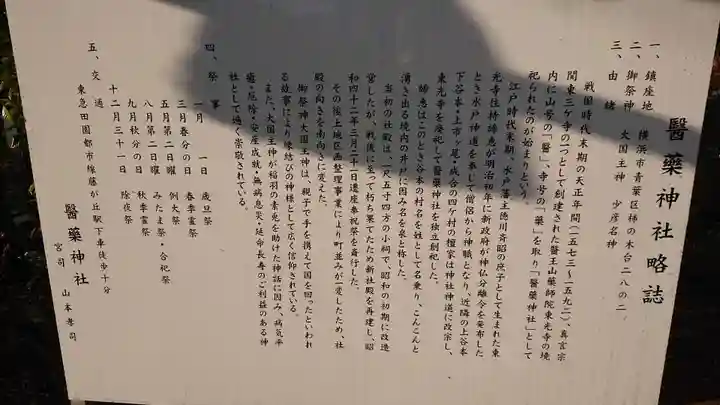 醫藥神社略誌
一、鎮座地　横浜市青葉区柿の木台二八の二
二、御祭神　大国主神　少彦名神
三、由緒
戦国時代末期の天正年間(一五七三～一五九二)、真言宗
関東三ケ寺の一つとして創建された醫王山薬師院東光寺の境
内に山号の「醫」、寺号の「藥」を取り「醫藥神社」として
祀られたのが始まりという。
江戸時代末期、水戸藩主徳川斉昭の庶子として生まれた東
光寺住持緒恵が明治初年に新政府が神仏分離令を発布した
とき水戸神道を奉じて僧侶から神職となり、近隣の上谷本・
下谷本・上市ヶ尾・成合の四ケ村の檀家は神社神道に改宗し、
東光寺を廃祀して醫藥神社を独立創祀した。
緒恵はこのとき谷本の村名を姓として名乗り、こんこんと
湧き出る境内の井戸に因み名を泉と称した。
当初の社殿は、二尺五寸四方の小祠で、昭和の初期に改造
覚したが、戦後に至って朽ち果てたため新社殿を再建し、昭
和四十二年三月二十一日遷座奉祝祭を斎行した。
その後土地区画整理事業により町並みが一変したため、社
殿の向きを南向きに変えた。
御祭神大国主神は、親子で手を携えて国を回ったといわれ
る故事により縁結びの神様として広く信仰されている。
また、大国主神が稲羽の素兎を助けた神話に因み、病気平
癒・厄除・安産成就・無病息災・延命長寿のご利益のある神
社として遍く崇敬されている。
四、祭事
一月一日　歳旦祭
三月春分の日　春季霊祭
五月第二日曜　例大祭
八月第二日曜　みたま祭・合祀祭
九月秋分の日　秋季霊祭
十二月三十一日　除夜祭
五、交通
東急田園都市線藤が丘駅下車徒歩十分
醫藥神社
宮司　山本孝司